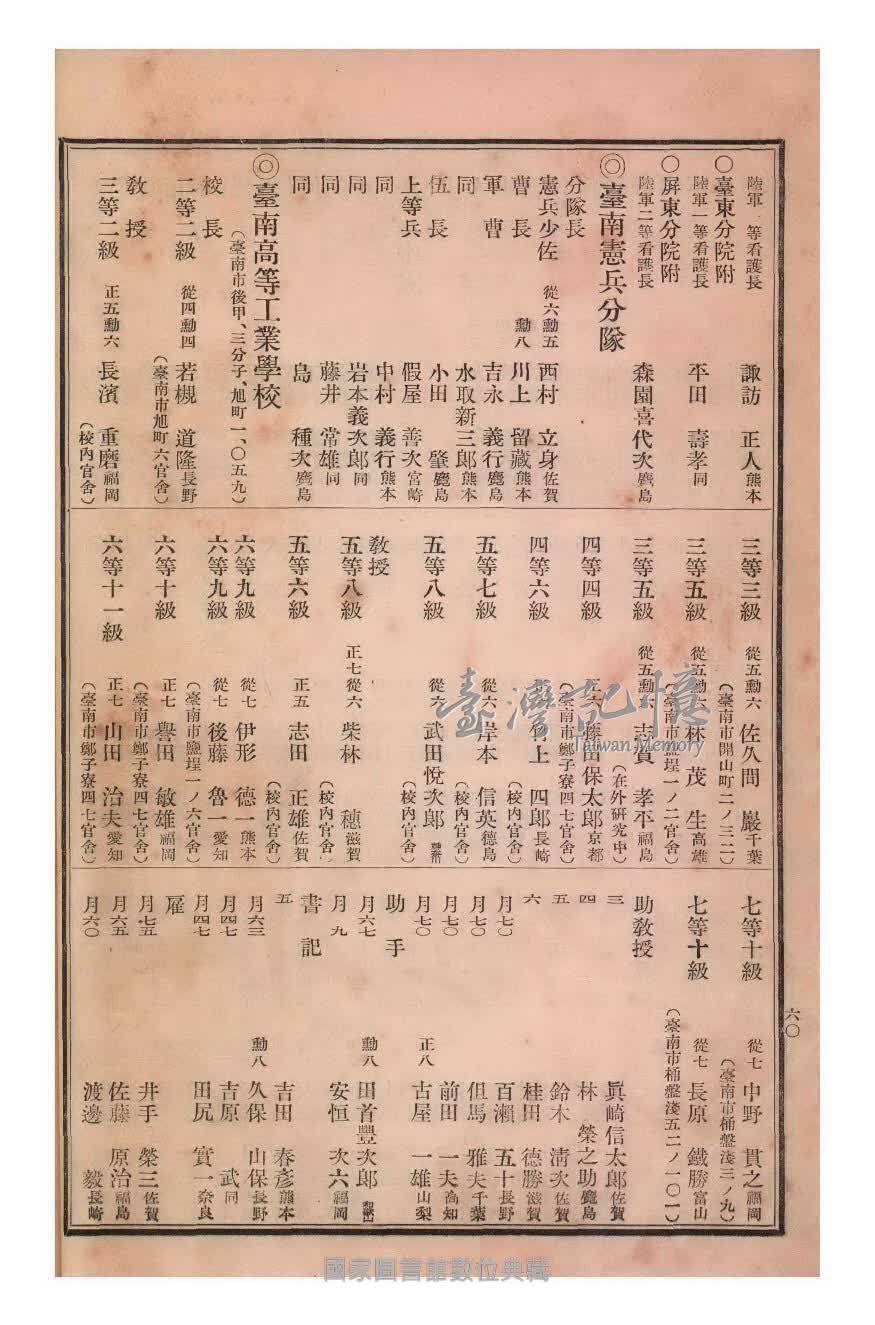 陸軍一等看護長 諏訪 正人 熊本
○臺東分院附
陸軍一等看護長 平田 壽孝 同
○屏東分院附
陸軍二等看護長 森園喜代次 鹿島
◎臺南憲兵分隊
分隊長
憲兵少佐 從六勳五 西村 立身 佐賀
曹長 勳八 川上 留藏 熊本
軍曹 吉永 義行 鹿島
同 水取新三郎 熊本
伍長 小田 肇 鹿島
上等兵 假屋 善次 宮崎
同 中村 義行 熊本
同 岩本義次郎 同
同 藤井 常雄 同
同 島 種次 鹿島
◎臺南高等工業學校
(臺南市後甲、三分子、旭町一、〇五九)
校長
二等二級 從四勳四 若槻 道隆 長野
(臺南市旭町六官舍)
教授
三等二級 正五勳六 長濱 重磨 福岡
(校內官舍)
三等三級 從五勳六 佐久間 巖 千葉
(臺南市開山町二ノ三二)
三等五級 從五勳六 林 茂生 高雄
(臺南市鹽埕一ノ二官舍)
三等五級 從五勳六 志賀 孝平 福島
(在外研究中)
四等四級 正六 藤田保太郎 京都
(臺南市鄭子寮四七官舍)
四等六級 竹上 四郎 長崎
(校內官舍)
五等七級 從六 岸本 信英 德島
(校內官舍)
五等八級 從六 武田悅次郎
(校內官舍)
教授
五等八級 正七從六 柴林 穗 滋賀
(校內官舍)
五等六級 正五 志田 正雄 佐賀
(校內官舍)
六等九級 從七 伊形 德一 熊本
六等九級 從七 後藤 魯一 愛知
(臺南市鹽埕一ノ六官舍)
六等十級 正七 譽田 敏雄 福岡
(臺南市鄭子寮四七官舍)
六等十一級 正七 山田 治夫 愛知
(臺南市鄭子寮四七官舍)
七等十級 從七 中野 貫之 福岡
(臺南市桶盤淺三ノ九)
七等十級 從七 長原 鐵勝 富山
(臺南市桶盤淺五二ノ一〇一)
助教授
三 眞崎信太郎 佐賀
四 林 榮之助 鹿島
五 鈴木 淸次 佐賀
六 桂田 德勝 滋賀
月七〇 百瀨 五十 長野
月七〇 但馬 雅夫 千葉
月七〇 前田 一夫 高知
月七〇 正八 古屋 一雄 山梨
助手
月六七 勳八 田首豐次郎 和歌山
月九 安恒 次六 福岡
書記
五 吉田 春彥 熊本
月六三 勳八 久保 山保 長野
月四七 吉原 武 同
月四七 田尻 實一 奈良
雇
月七五 井手 榮三 佐賀
月六五 佐藤 原治 福島
月六〇 渡邊 毅 長崎
六〇
臺灣記憶
Taiwan Memory
國家圖書館數位典藏